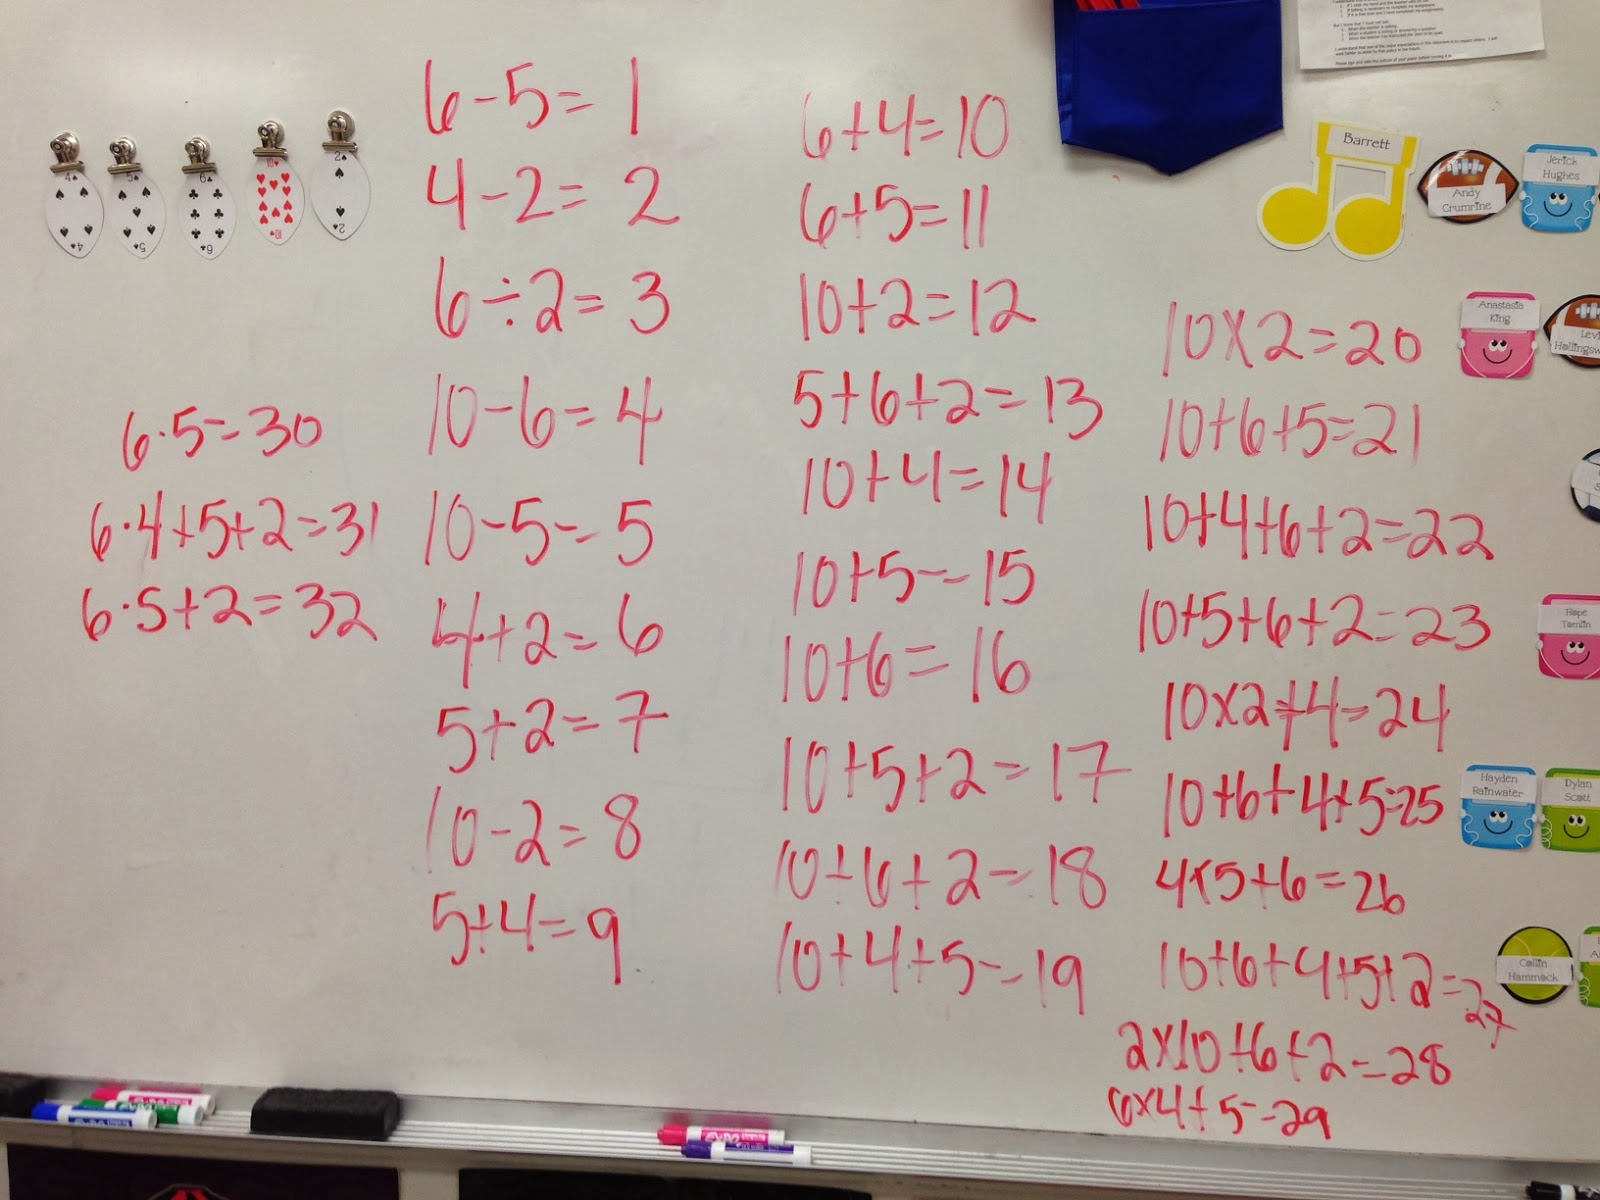 4♠ 5♠ 6♣ 10♥ 2♠
6-5=1
4-2=2
6÷2=3
10-6=4
10-5=5
4+2=6
5+2=7
10-2=8
5+4=9
6+4=10
6+5=11
10+2=12
5+6+2=13
10+4=14
10+5=15
10+6=16
10+5+2=17
10+6+2=18
10+4+5=19
10x2=20
10+6+5=21
10+4+6+2=22
10+5+6+2=23
10x2+4=24
10+6+4+5=25
4x5+6=26
10+6+4+5+2=27
2x10+6+2=28
6x4+5=29
6·5=30
6·4+5+2=31
6·5+2=32
Barrett
Andy
Crumrine
Jerick
Hughes
Anastasia
King
Hope
Tomlin
Hayden
Rainwater
Dylan
Scott
Collin
Hammock